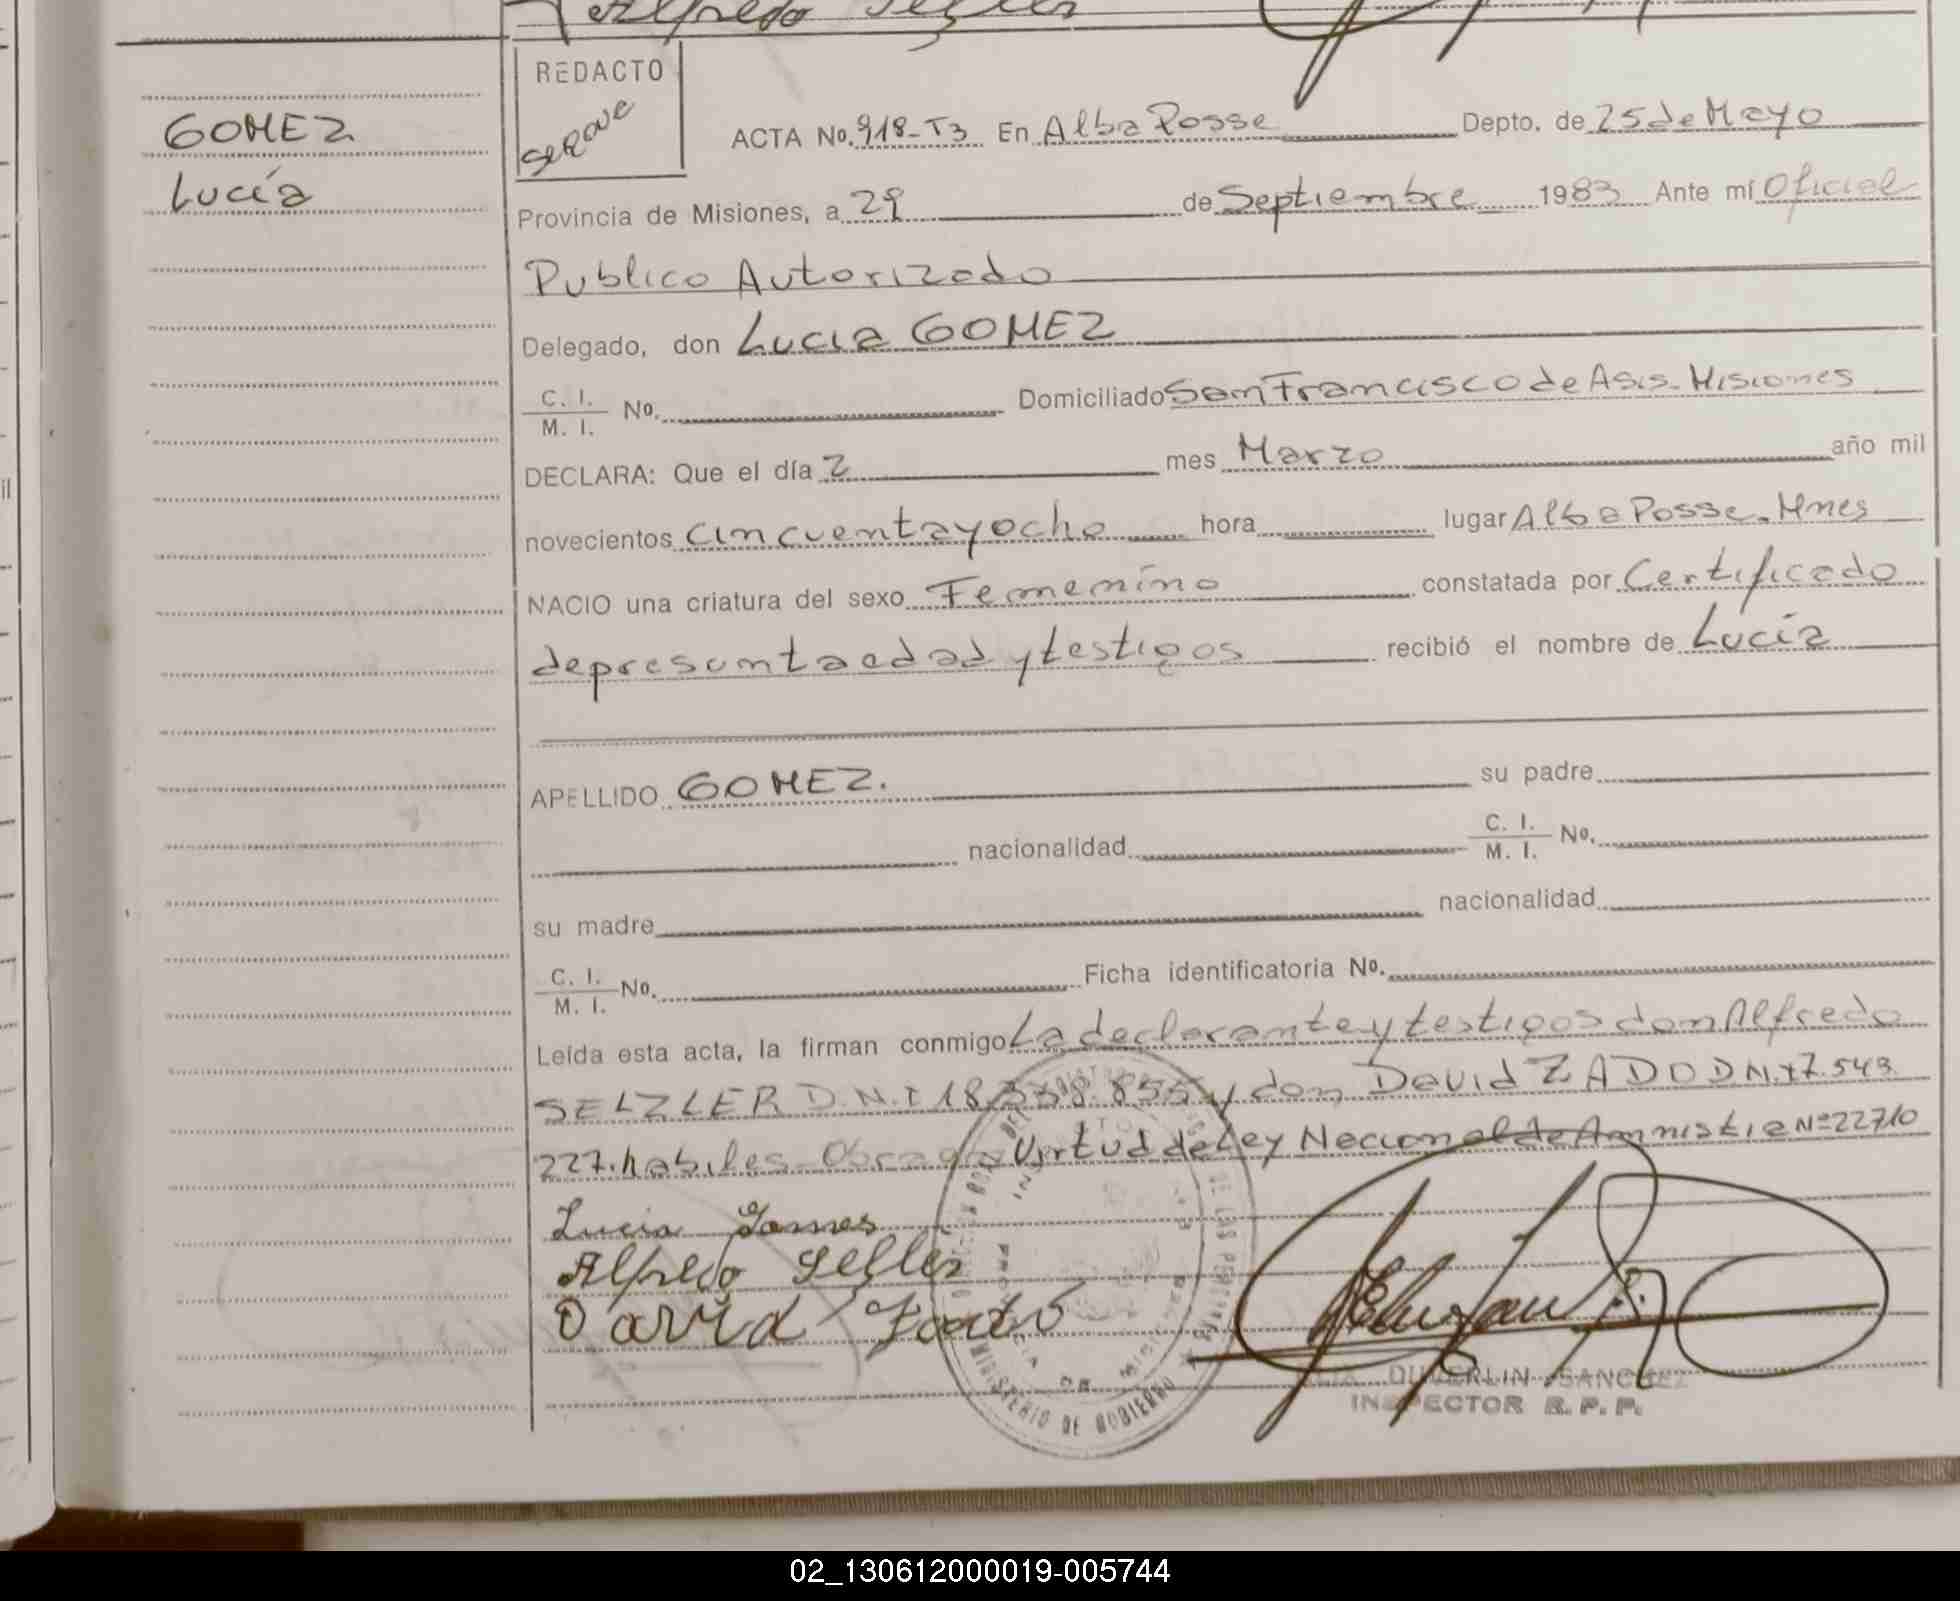 Alfredo Selles
GOMEZ
Lucía
REDACTO
ACTA No. 918-T3 En Alba Posse Depto. de 25 de Mayo
Provincia de Misiones, a 29 de Septiembre 1983 Ante mí Oficial
Publico Autorizado
Delegado, don Lucia GOMEZ
C. I.
M. I. No. Domiciliado San Francisco de Asis - Misiones
DECLARA: Que el día 2 mes Marzo año mil
novecientos cincuenta y ocho hora lugar Alba Posse. Mnes
NACIO una criatura del sexo Femenino constatada por Certificado
de presunta edad y testigos recibió el nombre de Lucía
APELLIDO GOMEZ. su padre
nacionalidad C. I.
M. I. No.
su madre nacionalidad
C. I.
M. I. No. Ficha identificatoria No.
Leída esta acta, la firman conmigo La declarante y testigos don Alfredo
SELZLER D.N.I 18.338.855 y don David ZADO D.N.I 7.543.
227. habiles - Obra en Virtud de Ley Nacional de Amnistia Nº 22710
Lucia Gomes
Alfredo Selles
David
MINISTERIO DE GOBIERNO
DE LAS PERSONAS
SANCHEZ
INSPECTOR R. P. P.
02_130612000019-005744